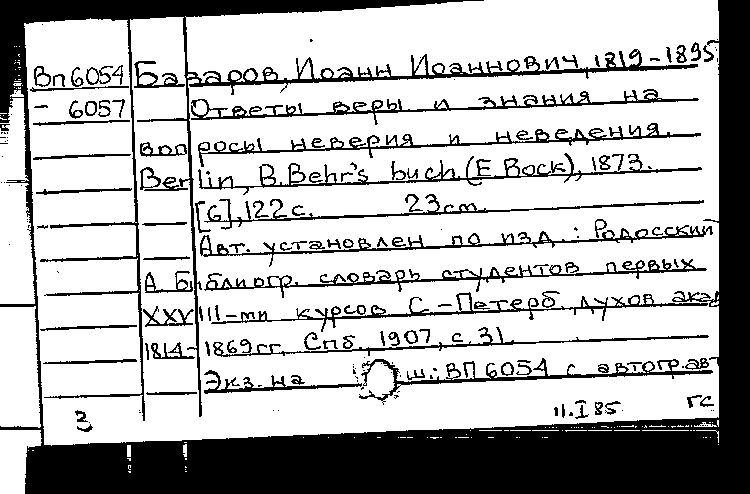 Вп 6054 Базаров, Иоанн Иоаннович, 1819-1895
- 6057 Ответы веры и знания на
вопросы неверия и неведения.
Berlin, B. Behr's buch. (E. Bock), 1873.
[6], 122 с. 23 cm.
Авт. установлен по изд.: Родосский
А. Библиогр. словарь студентов первых
XXVIII-ми курсов С.-Петерб. духов. акад
1814-1869 гг. Спб., 1907, с. 31.
Экз. на ш.: ВП 6054 с автогр. авт
3 11.I 85 ГС